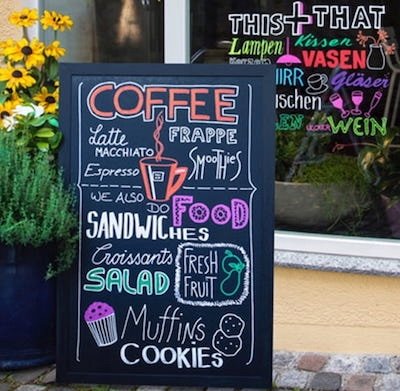 COFFEE
Latte MACCHIATO
FRAPPE
Espresso
Smoothies
WE ALSO DO FOOD
SANDWICHES
Croissants
SALAD
FRESH FRUIT
Muffins
COOKIES
THIS + THAT
Lampen Kissen
VASEN Gläser
WEIN